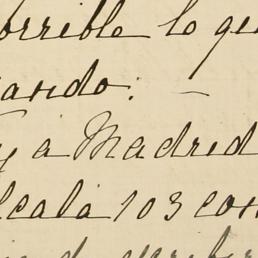 orrible lo que
ando: —
y a Madrid
lcalá 103 con